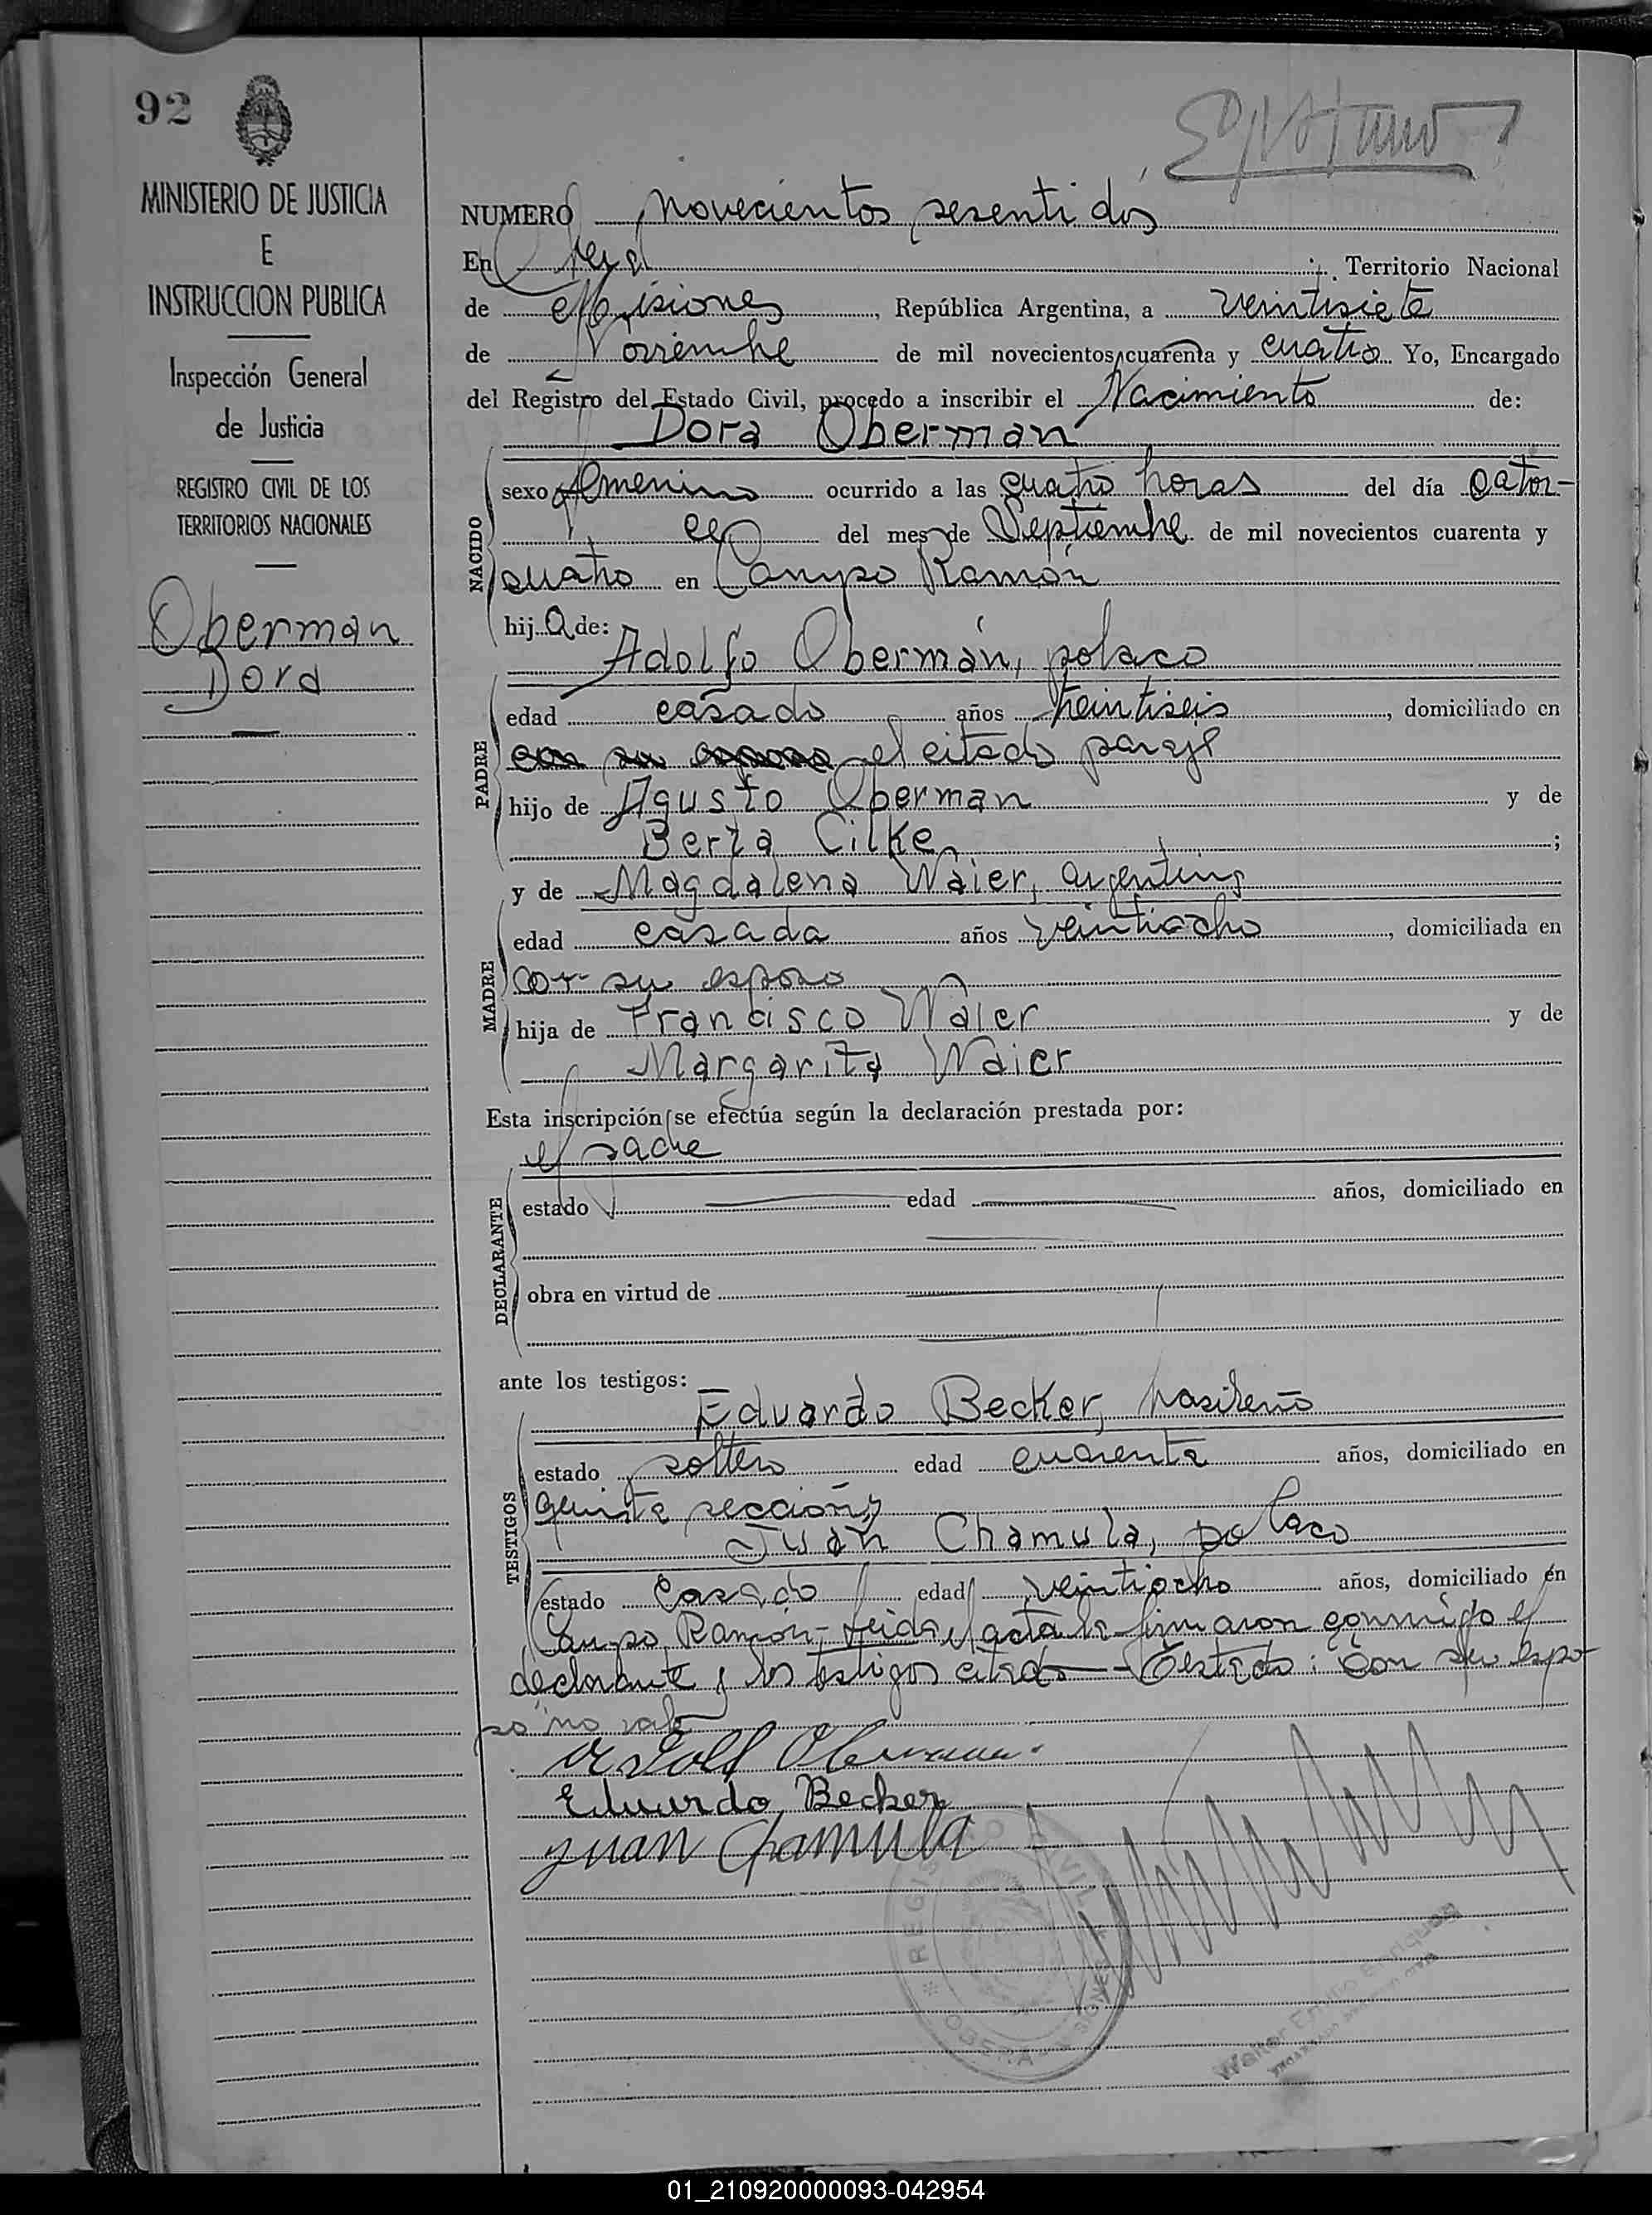 92
MINISTERIO DE JUSTICIA
E
INSTRUCCION PUBLICA
Inspección General
de Justicia
REGISTRO CIVIL DE LOS
TERRITORIOS NACIONALES
Oberman
Dora
NUMERO novecientos sesenti dos
En Oberá ; Territorio Nacional
de Misiones, República Argentina, a veintisiete
de Noviembre de mil novecientos cuarenta y cuatro Yo, Encargado
del Registro del Estado Civil, procedo a inscribir el Nacimiento de:
Dora Oberman
NACIDO
sexo femenino ocurrido a las cuatro horas del día cator-
ce del mes de Septiembre de mil novecientos cuarenta y
cuatro en Campo Ramón
hij a de:
Adolfo Oberman, polaco
PADRE
edad casado años treintiseis, domiciliado en
con su esposo el citado paraje
hijo de Agusto Oberman y de
Berta Cilke ;
y de Magdalena Waier, argentina
MADRE
edad casada años veintiocho, domiciliada en
con su esposo
hija de Francisco Waier y de
Margarita Waier
Esta inscripción se efectúa según la declaración prestada por:
el padre
DECLARANTE
estado edad años, domiciliado en
obra en virtud de
ante los testigos:
Eduardo Becker, brasileño
TESTIGOS
estado soltero edad cuarenta años, domiciliado en
quinta sección y
Juan Chamula, polaco
estado casado edad veintiocho años, domiciliado en
Campo Ramón, leida el acta la firmaron conmigo el
declarante y los testigos citados - Testado: con su espo-
so no vale
Adolf Oberman
Eduardo Becker
Juan Chamula
REGISTRO CIVIL
OBERA MISIONES
Walter Emilio Enriquez
01_210920000093-042954